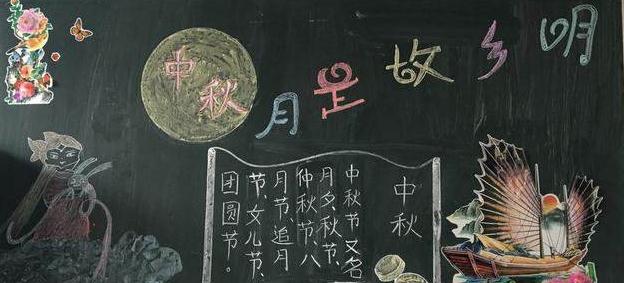 中秋
月是故乡明
中秋
中秋节又名
月夕、秋节、
仲秋节、八
月节、追月
节、女儿节、
团圆节。